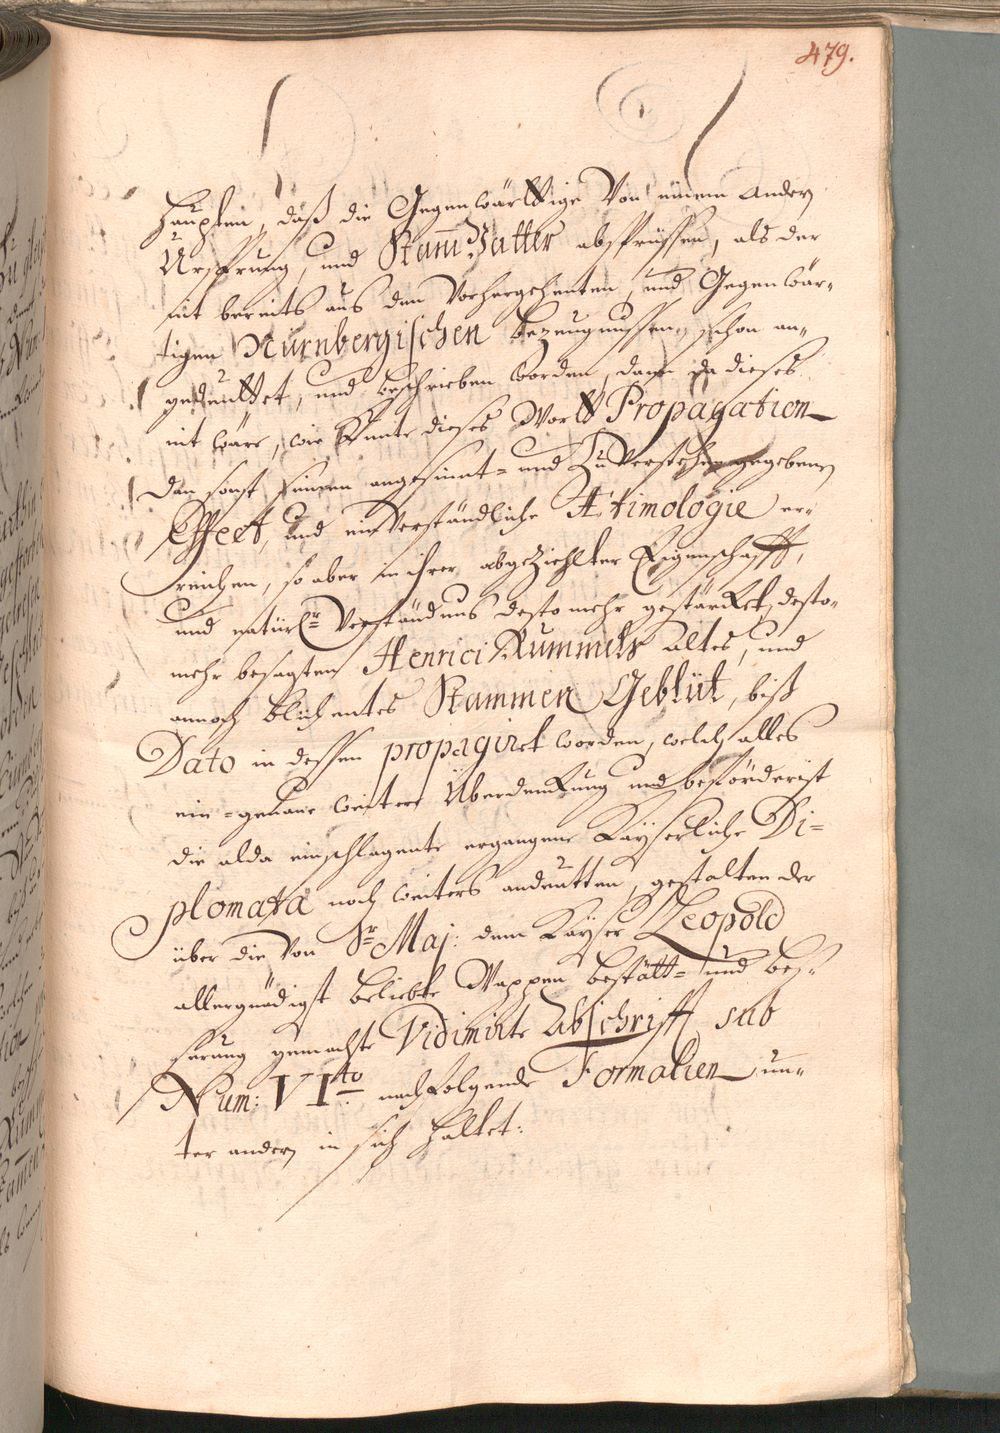 479.
haupten, daß die Gegenwärttige Von einem andern
Ursprung, und Stam̄Vatter absprüssen, als der
mit bereits aus den Vorhergehenten, und Gegenwär-
tigen Nürnbergischen bezeugnussen, schon an-
gedeuttet, und beschrieben worden, dann da dieses
nit wäre, wie kunte dieses Wortt Propagation
dan sonst seinen angesinnt= und Zu Verstehen gegebenen
Effect, und ein Verständliche Ætimologie er-
reichen, so aber in ihrer abgeziehlter Eigenschafft,
und natürl: Verständnus desto mehr gestärcket, desto-
mehr besagten Henrici Rummels altes, und
annoch blühentes Stammen Geblüt, biß
Dato in dessen propagiret worden, welch alles
ein=genaue weitere Überdenkung und beförderist
die alda einschlagente ergangene Kayserliche Di=
plomata noch weiters andeutten, gestalten der
über die Von Sr Maj: dem Kayser Leopold
allergnädigst beliebte Wappen bestätt= und bes-
serung gemachte Vidimirte Abschrifft sub
Num: VIto nachfolgende Formalien un-
ter andern in sich haltet: